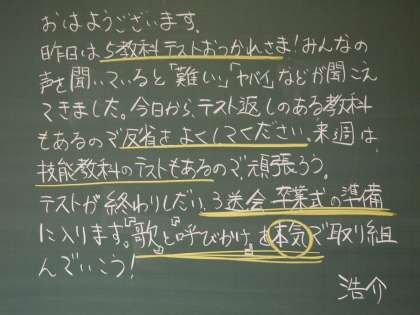 おはようございます。
昨日は5教科テストおつかれさま！みんなの
声を聞いていると「難しい」「ヤバイ」などが聞こえ
てきました。今日から、テスト返しのある教科
もあるので反省をよくしてください。来週は、
技能教科のテストもあるので、頑張ろう。
テストが終わりしだい、3送会 卒業式の準備
に入ります。『歌』と『呼びかけ』を本気で取り組
んでいこう！
浩介